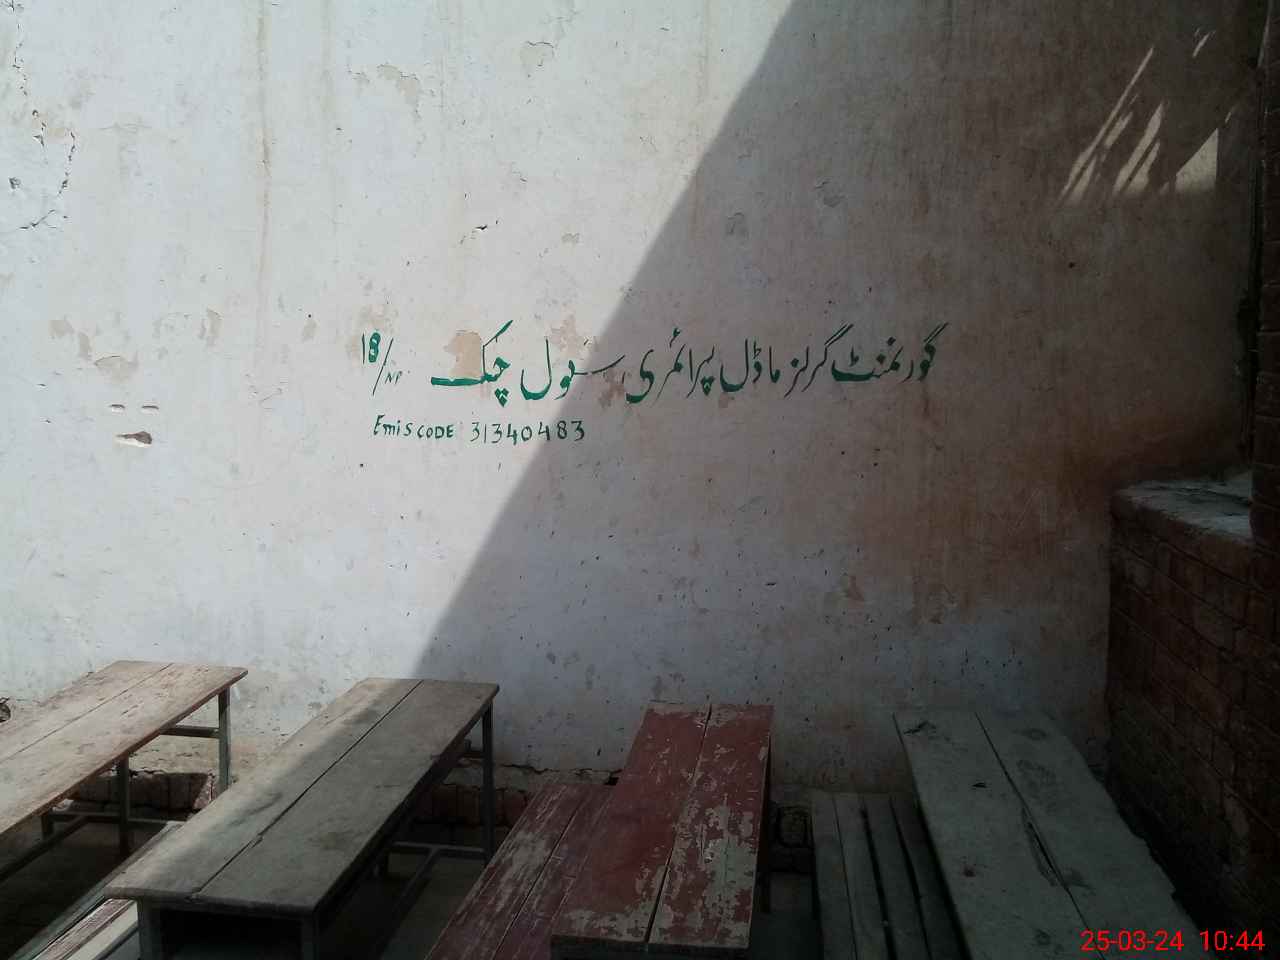 گورنمنٹ گرلز ماڈل پرائمری سکول چک 18/NP
Emis CODE 31340483
25-03-24 10:44